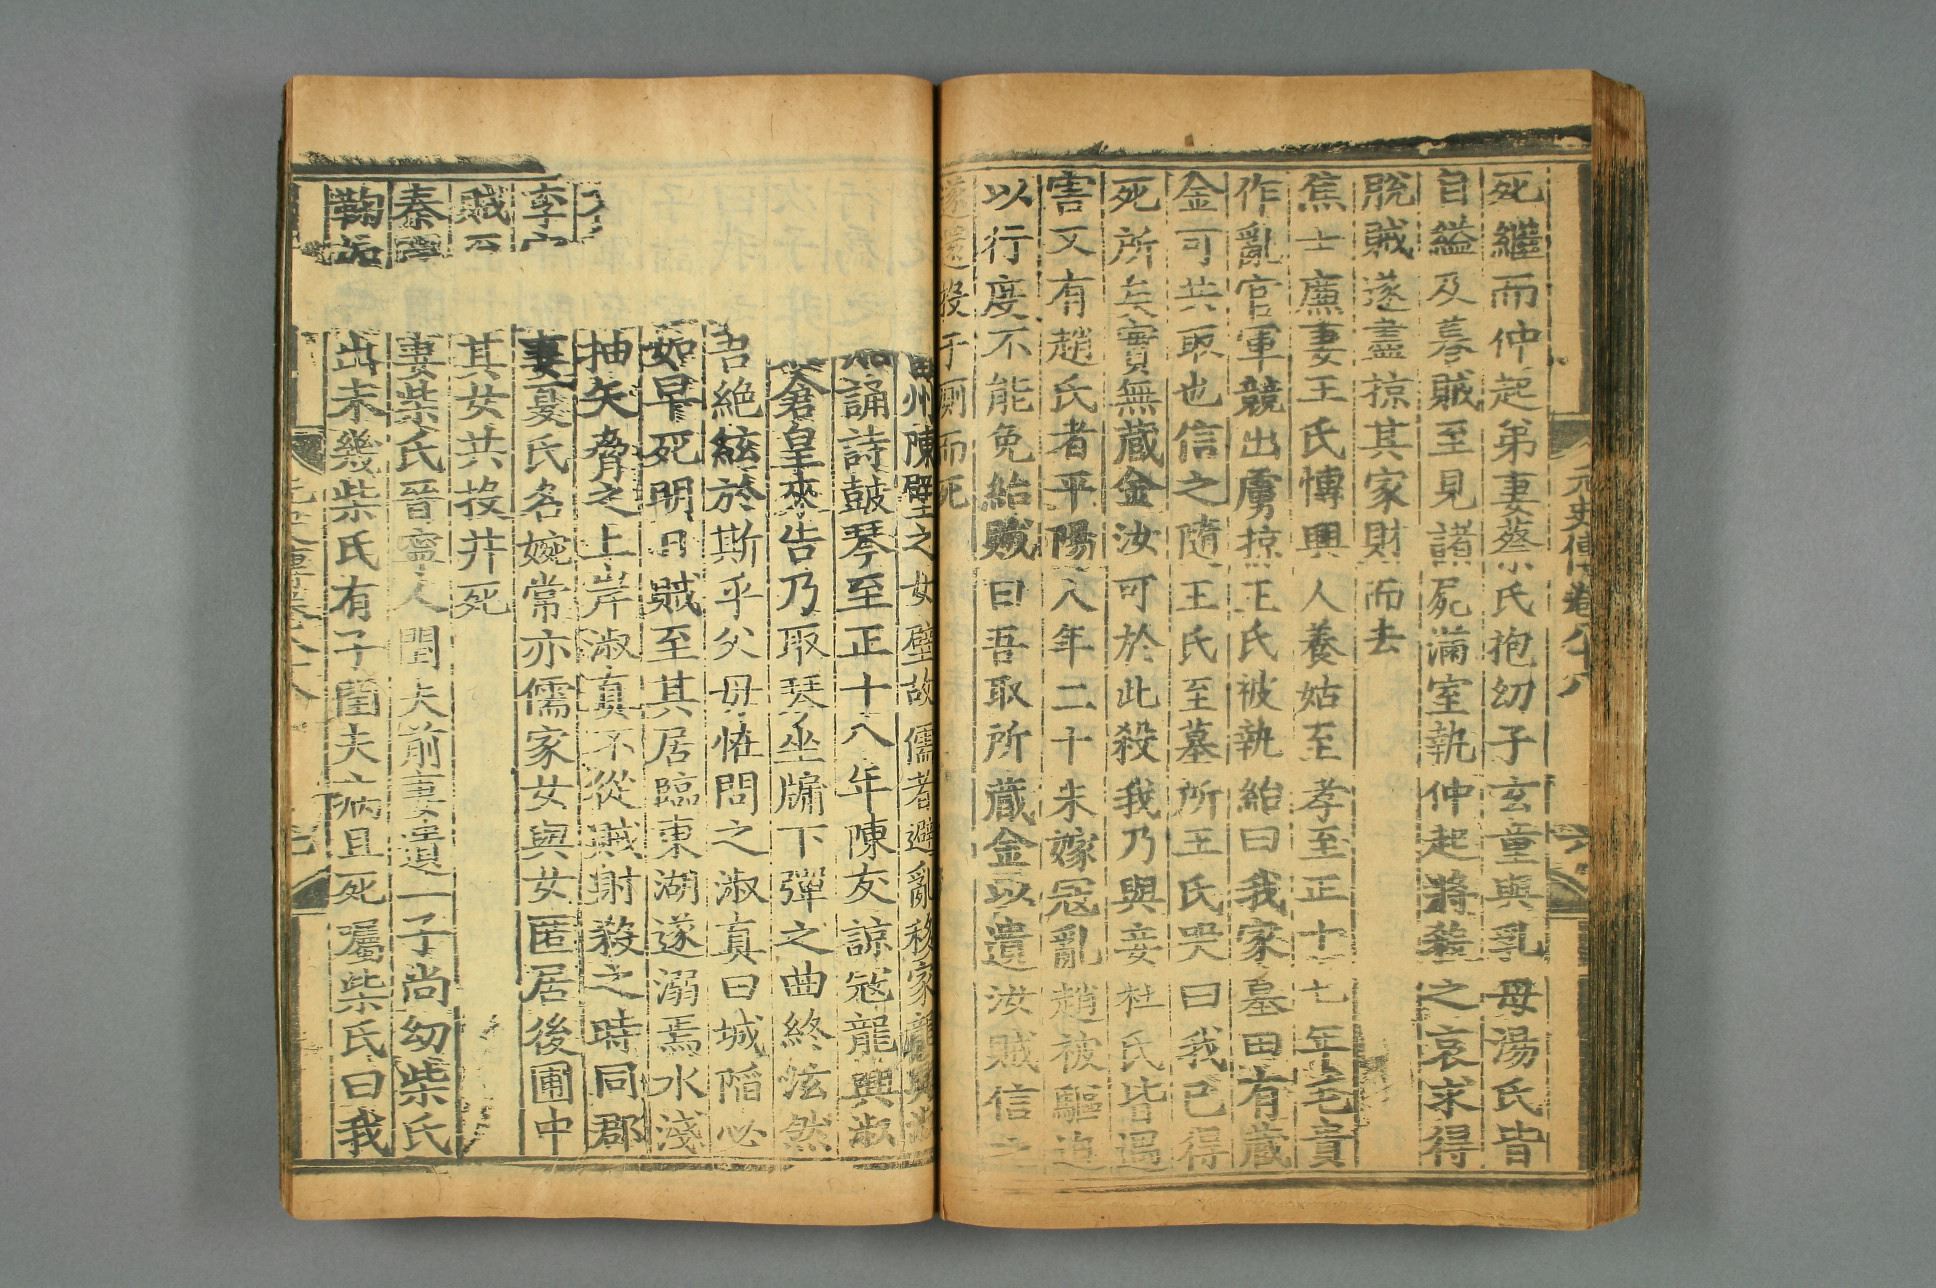 元史傳卷八十八
六
死繼而仲起弟妻蔡氏抱幼子玄童與乳母湯氏皆
自縊及暮賊至見諸屍滿室執仲起將殺之哀求得
脫賊遂盡掠其家財而去
焦士廉妻王氏博興人養姑至孝至正十七年毛貴
作亂官軍競出虜掠王氏被執紿曰我家墓田有藏
金可共取也信之隨王氏至墓所王氏哭曰我已得
死所矣實無藏金汝可於此殺我乃與妾杜氏皆遇
害又有趙氏者平陽人年二十未嫁冦亂趙被驅迫
以行度不能免紿賊曰吾取所藏金以遺汝賊信之
遂還投于厠而死
州陳璧之女璧故儒者避亂移家龍興淑
誦詩鼓琴至正十八年陳友諒冦龍興淑
倉皇來告乃取琴坐牖下彈之曲終泫然
吾絶絃於斯乎父母怪問之淑真曰城陷必
如早死明日賊至其居臨東湖遂溺焉水淺
抽矢脅之上岸淑真不從賊射殺之時同郡
李 妻夏氏名婉常亦儒家女與女匿居後圃中
賊 其女共投井死
秦閏 妻柴氏晉寧人閏夫前妻遺一子尚幼柴氏
鞠 出未幾柴氏有子閏夫病且死屬柴氏曰我